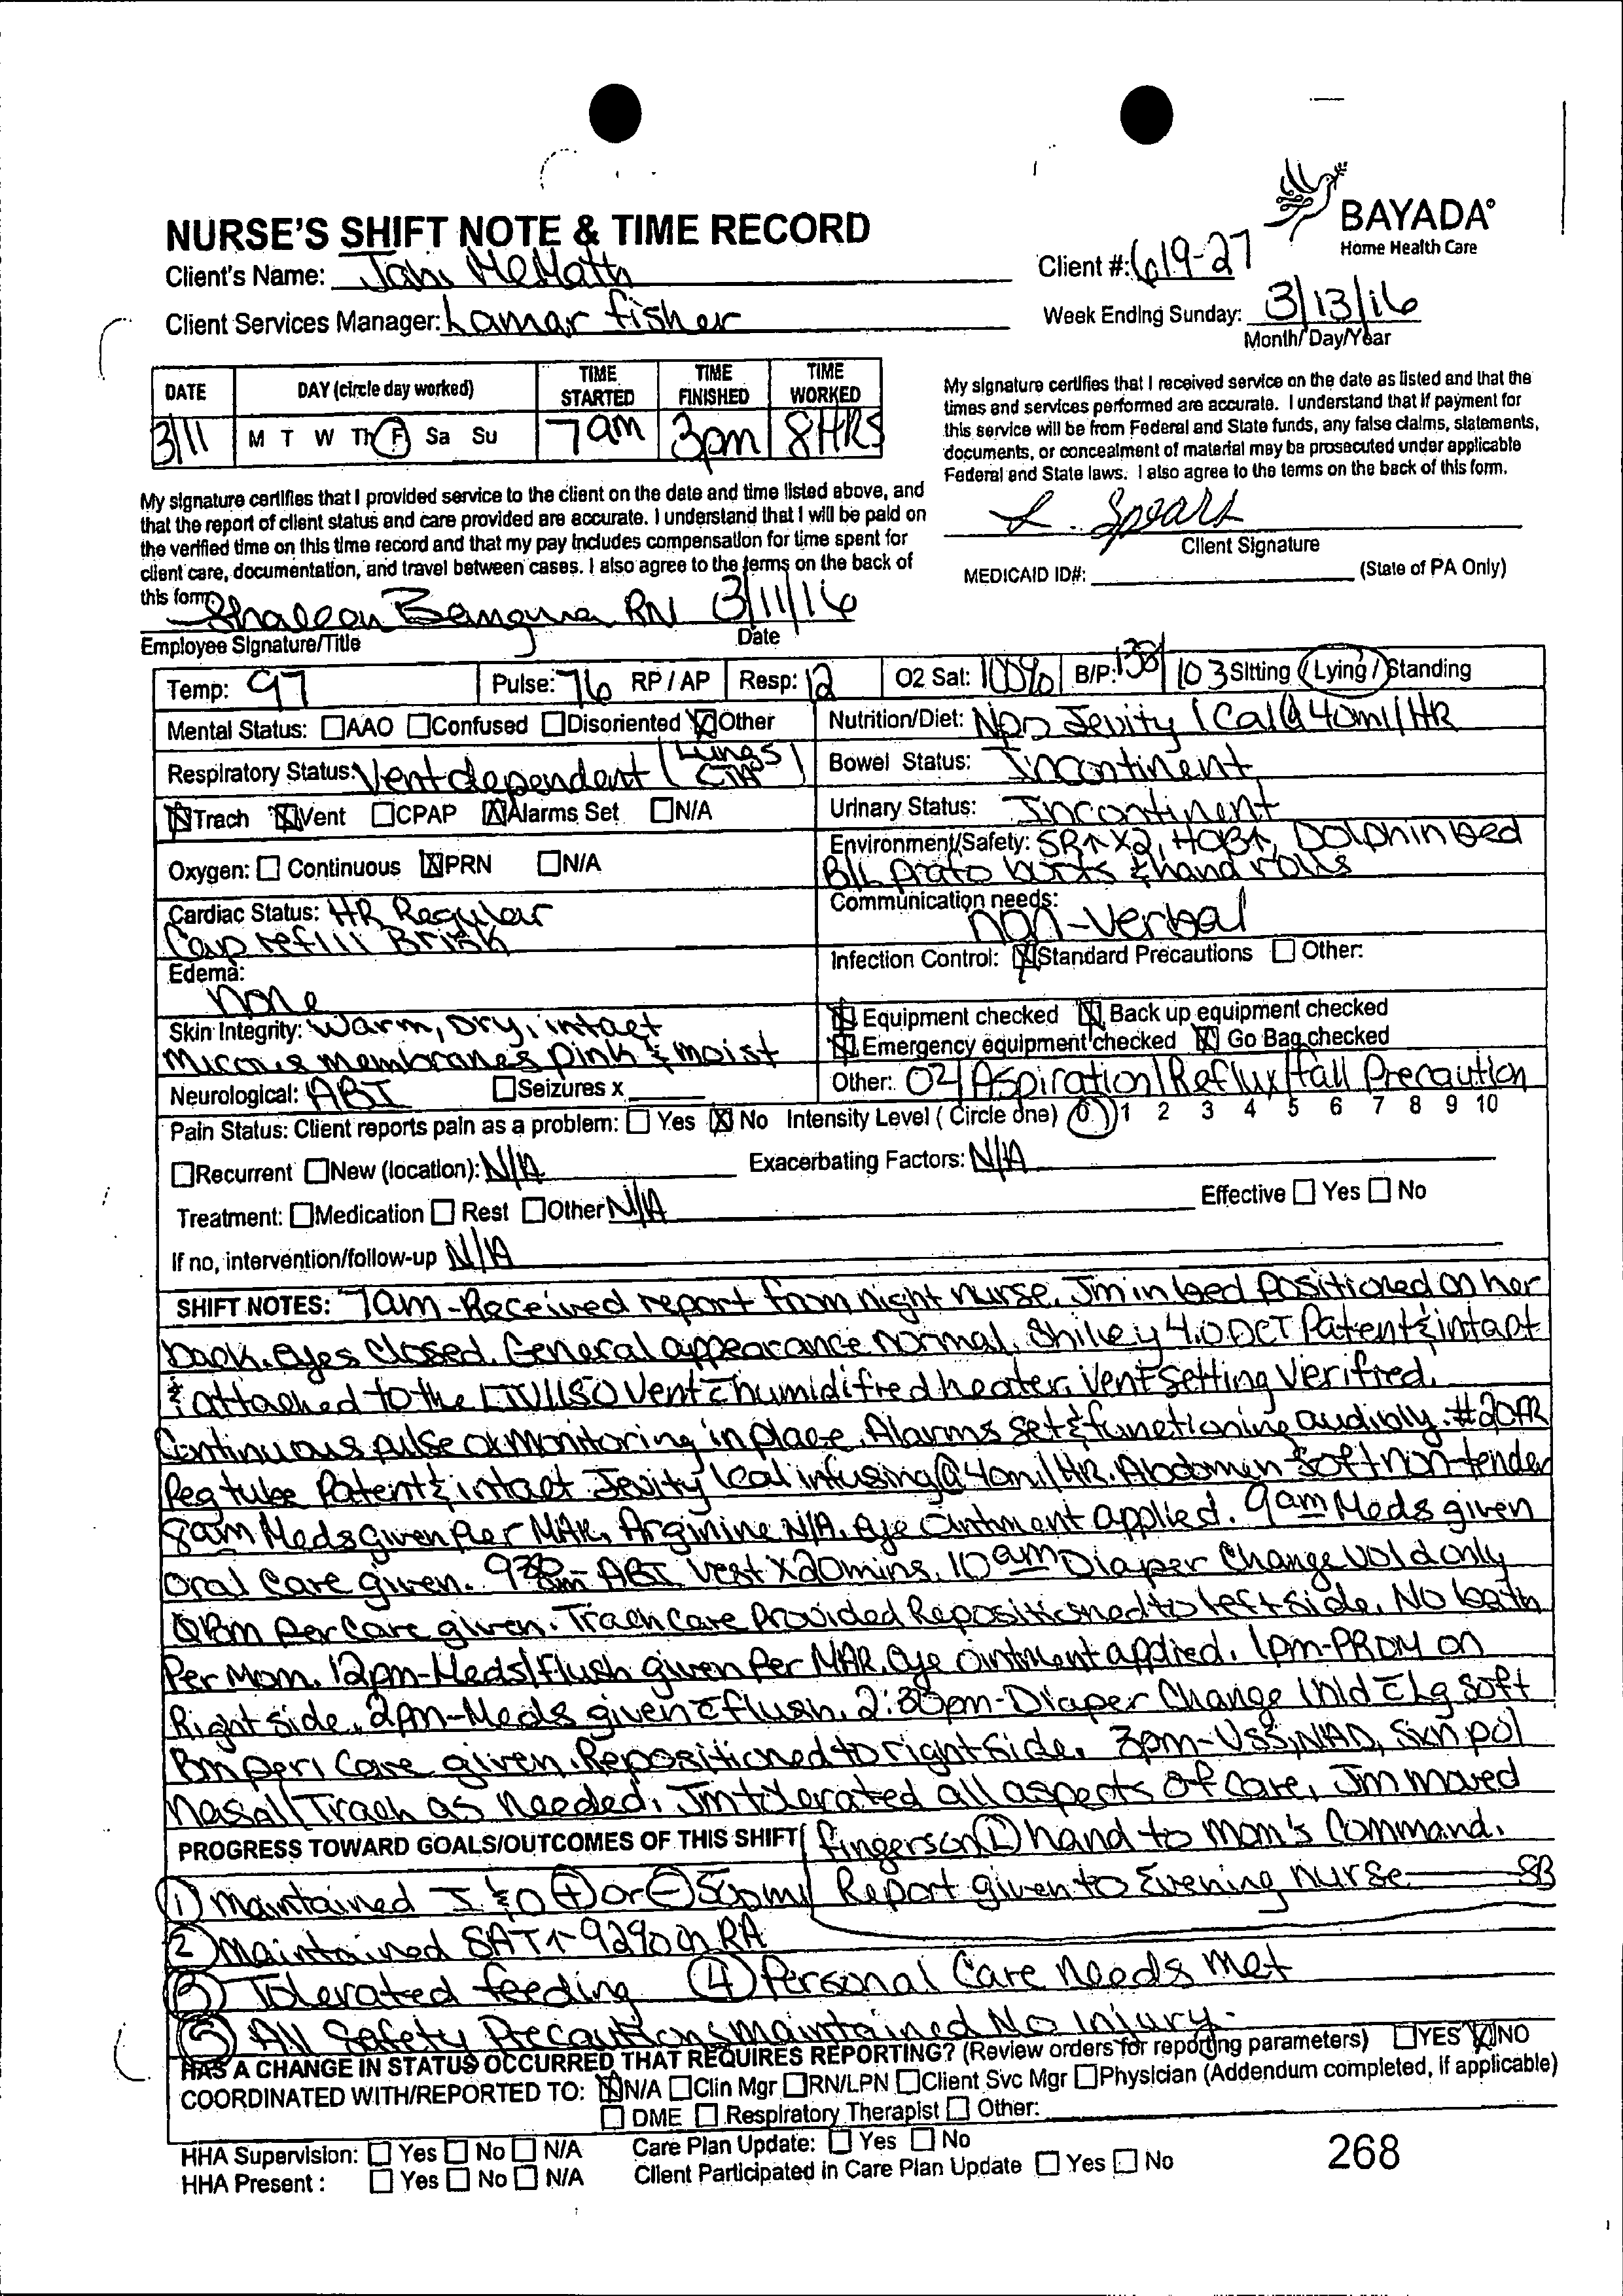 BAYADA®
Home Health Care
NURSE'S SHIFT NOTE & TIME RECORD
Client's Name: Jahi McMath
Client #: 619-27
Client Services Manager: Lamar Fisher
Week Ending Sunday: 3/13/16
Month/Day/Year
DATE DAY (circle day worked) TIME STARTED TIME FINISHED TIME WORKED
3/11 M T W Th F Sa Su 7am 3pm 8HRS
My signature certifies that I received service on the date as listed and that the
times and services performed are accurate. I understand that if payment for
this service will be from Federal and State funds, any false claims, statements,
documents, or concealment of material may be prosecuted under applicable
Federal and State laws. I also agree to the terms on the back of this form.
My signature certifies that I provided service to the client on the date and time listed above, and
that the report of client status and care provided are accurate. I understand that I will be paid on
the verified time on this time record and that my pay includes compensation for time spent for
client care, documentation, and travel between cases. I also agree to the terms on the back of
this form.
RN 3/11/16
Employee Signature/Title Date
L. Spears
Client Signature
MEDICAID ID#: (State of PA Only)
Temp: 97 Pulse: 76 RP / AP Resp: 12 O2 Sat: 100% B/P: 138/103 Sitting / Lying / Standing
Mental Status: ☐AAO ☐Confused ☐Disoriented ☒Other
Nutrition/Diet: NPO Jevity 1Cal@40ml/HR
Respiratory Status: Vent dependent (Lungs CTA)
Bowel Status: Incontinent
☒Trach ☒Vent ☐CPAP ☒Alarms Set ☐N/A
Urinary Status: Incontinent
Oxygen: ☐ Continuous ☒PRN ☐N/A
Environment/Safety: SR↑X2, HOB↑, Dolphin bed
B/L & hand rolls
Cardiac Status: HR Regular
Cap refill Brisk
Communication needs: non-verbal
Edema: none
Infection Control: ☒Standard Precautions ☐ Other:
Skin Integrity: Warm, Dry, intact
Mucous membranes pink & moist
☒ Equipment checked ☒ Back up equipment checked
☒ Emergency equipment checked ☒ Go Bag checked
Neurological: ABI ☐Seizures x
Other: O2/Aspiration/Reflux/Fall Precaution
Pain Status: Client reports pain as a problem: ☐ Yes ☒ No Intensity Level ( Circle one) 0 1 2 3 4 5 6 7 8 9 10
☐Recurrent ☐New (location): N/A Exacerbating Factors: N/A
Treatment: ☐Medication ☐ Rest ☐Other N/A Effective ☐ Yes ☐ No
If no, intervention/follow-up N/A
SHIFT NOTES: 7am-Received report from night nurse. Jm in bed positioned on her
back. Eyes closed. General appearance normal. Shiley 4.0 DCT Patent & intact
& attached to the LTV1150 vent c̄ humidified heater. Vent setting verified.
Continuous pulse ox monitoring in place. Alarms set & functioning audibly. #20FR
Peg tube Patent & intact Jevity 1cal infusing@40ml/HR. Abdomen soft non-tender
8am Meds given Per MAR, Arginine N/A. Eye Ointment applied. 9am Meds given
Oral Care given. 930am- ABI Vest X20mins. 10am Diaper Change Void only
ØBm Peri Care given. Trach care Provided Repositioned to left side. No bath
Per Mom. 12pm-Meds/Flush given Per MAR, Eye ointment applied. 1pm-PROM on
Right side. 2pm-Meds given c̄ flush. 2:30pm-Diaper Change 1void c̄ Lg soft
Bm peri Care given. Repositioned to right side. 3pm-VSS, NAD, Sxn po/
Nasal/Trach as needed. Jm tolerated all aspects of care, Jm moved
fingers on (L) hand to mom's Command.
Report given to Evening nurse SB
PROGRESS TOWARD GOALS/OUTCOMES OF THIS SHIFT
① maintained I & O ⊕ or ⊖ 500ml
② Maintained SAT↑92% on RA
③ Tolerated feeding ④ Personal Care needs met
⑤ All Safety Precautions maintained No injury.
HAS A CHANGE IN STATUS OCCURRED THAT REQUIRES REPORTING? (Review orders for reporting parameters) ☐YES ☒NO
COORDINATED WITH/REPORTED TO: ☒N/A ☐Clin Mgr ☐RN/LPN ☐Client Svc Mgr ☐Physician (Addendum completed, if applicable)
☐ DME ☐ Respiratory Therapist ☐ Other:
HHA Supervision: ☐ Yes ☐ No ☐ N/A Care Plan Update: ☐ Yes ☐ No
HHA Present : ☐ Yes ☐ No ☐ N/A Client Participated in Care Plan Update ☐ Yes ☐ No
268